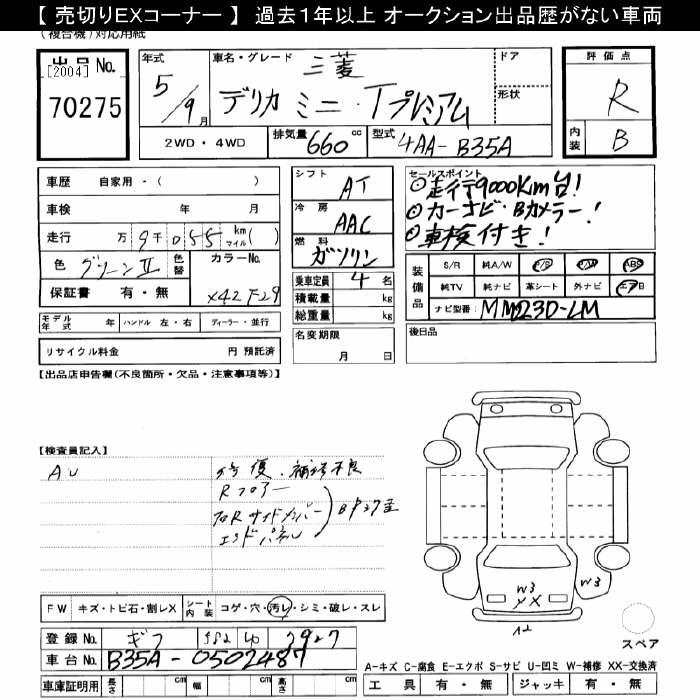 【 売切りEXコーナー 】 過去１年以上 オークション出品歴がない車両
(複合機)対応用紙
出品 No.
[2004]
70275
年式
5/9月
車名・グレード
三菱
デリカ ミニ・Tプレミアム
ドア
形状
2WD・4WD
排気量 660 cc
型式 4AA-B35A
評価点
R
内装 B
車歴 自家用・( )
車検 年 月
走行 万 9千055 km マイル( )
色 グリーンII 色替
カラーNo.
X42 F29
保証書 有・無
モデル年式 年 ハンドル 左・右 ディーラー・並行
リサイクル料金 円 預託済
シフト AT
冷房 AAC
燃料 ガソリン
乗車定員 4 名
積載量 kg
総重量 kg
名変期限
月 日
セールスポイント
⊙走行9000Km台!
⊙カーナビ・Bカメラー!
⊙車検付き!
装備品
S/R 純A/W P/S P/W ABS
純TV 純ナビ 革シート 外ナビ エアB
ナビ型番: MM223D-LM
後日品
【出品店申告欄(不良箇所・欠品・注意事項等)】
【検査員記入】
AU
修復、補修不良
Rフロアー
Rサイドメンバー
エンドパネル
FW キズ・トビ石・割レX
シート内装 コゲ・穴・汚レ・シミ・破レ・スレ
登録 No. ギフ 582 3927
車台 No. B35A-0502487
車庫証明用 長さ cm 幅 cm 高さ cm
W3
XX
W3
A2
スペア
A-キズ C-腐食 E-エクボ S-サビ U-凹ミ W-補修 XX-交換済
工具 有・無 ジャッキ 有・無